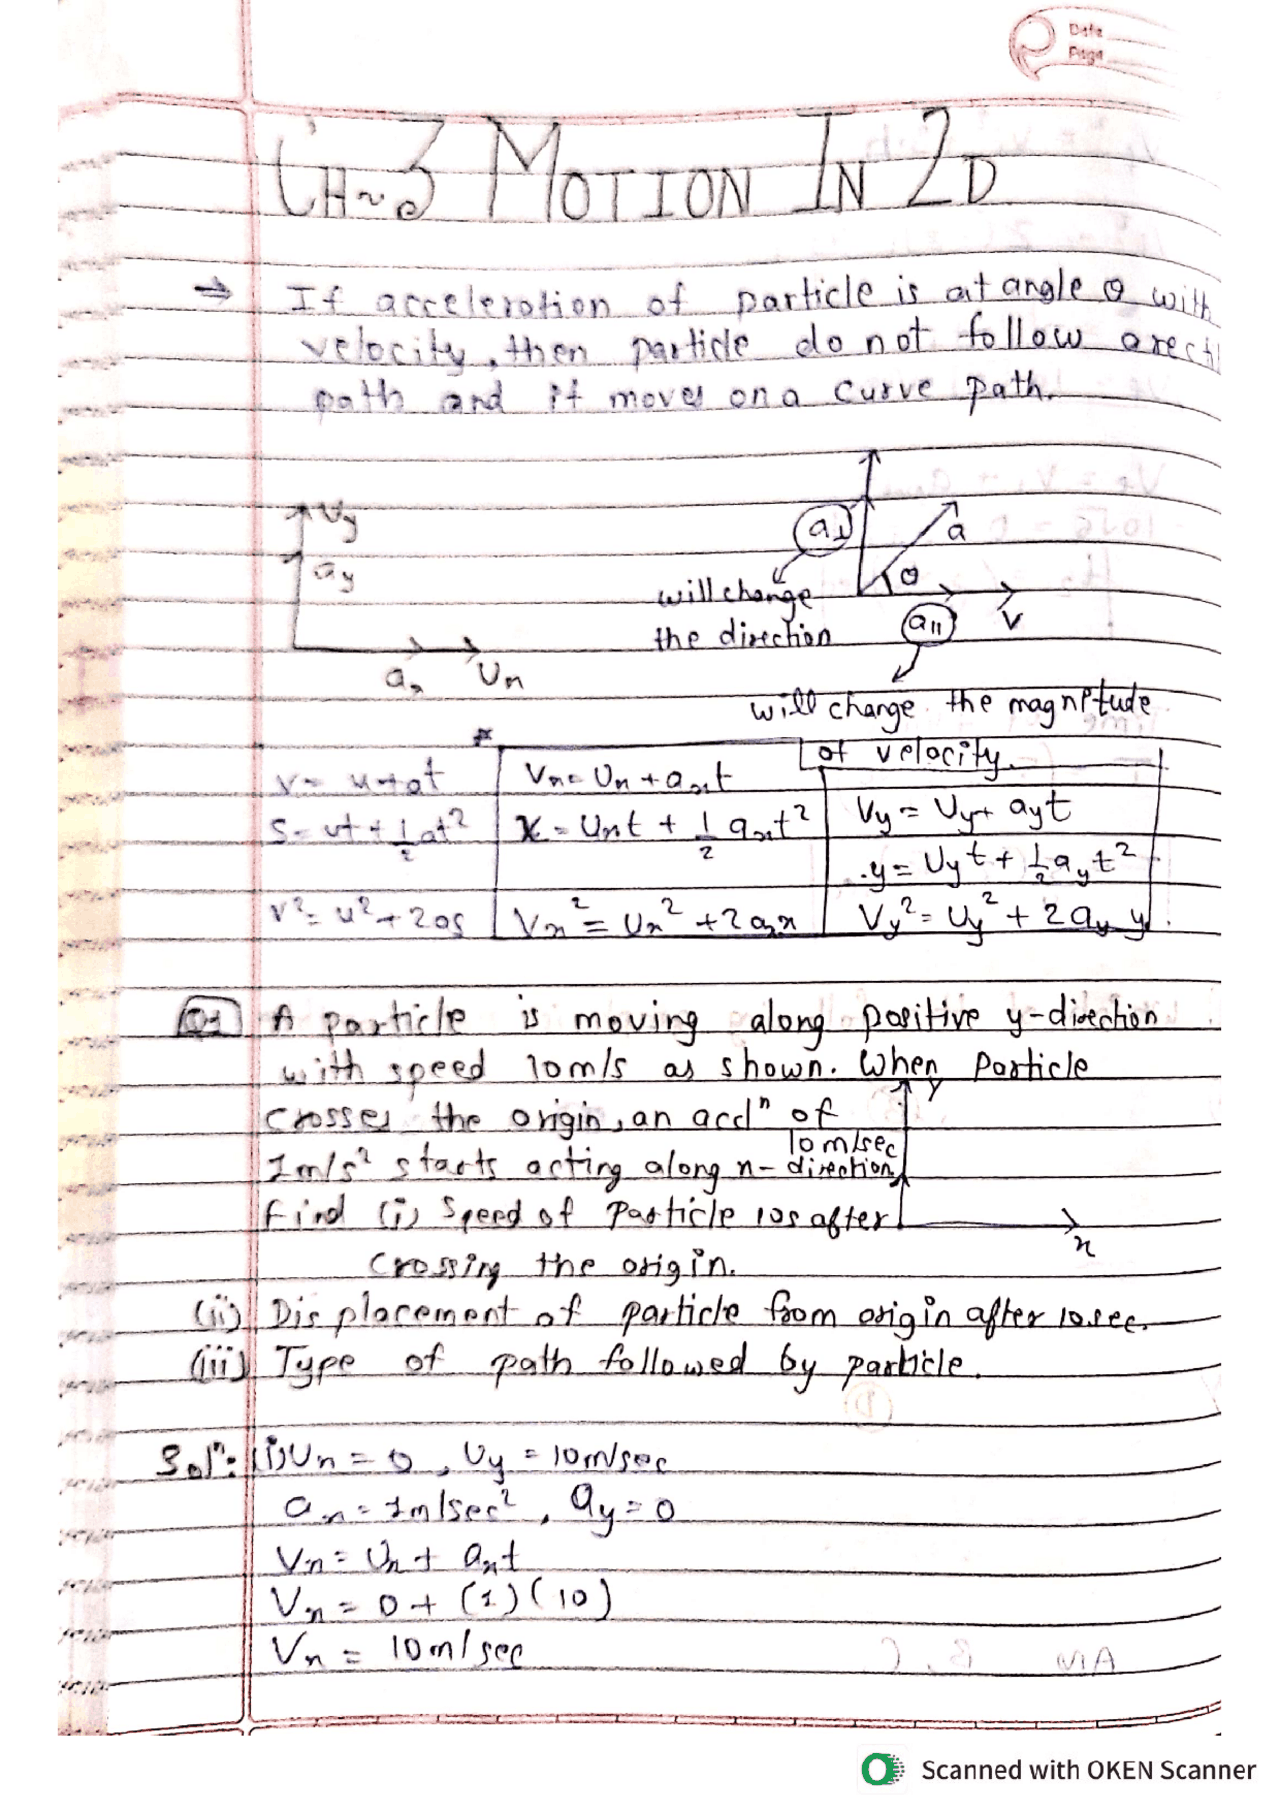 Date
Page
CH~3 MOTION IN 2D
⇒ If acceleration of particle is at angle θ with
velocity, then particle do not follow a rect
path and it moves on a curve path.
Vy
ay
ax Ux
a⊥
a
θ
will change
the direction
a||
V
will change the magnitude
of velocity.
V = u+at
Vx = Ux + axt
Vy = Uy + ayt
S = ut + 1/2 at²
x = Uxt + 1/2 axt²
y = Uyt + 1/2 ayt²
v² = u² + 2as
Vx² = Ux² + 2axx
Vy² = Uy² + 2ay y
Q1 A particle is moving along positive y-direction
with speed 10m/s as shown. When Particle
crosses the origin, an acclⁿ of
1m/s² starts acting along x-direction
find (i) Speed of Particle 10s after
crossing the origin.
Y
10 m/sec
x
(ii) Displacement of particle from origin after 10sec.
(iii) Type of path followed by particle.
Solⁿ: (i) Ux = 0, Uy = 10m/sec
ax = 1m/sec², ay = 0
Vx = Ux + axt
Vx = 0 + (1)(10)
Vx = 10m/sec
Scanned with OKEN Scanner